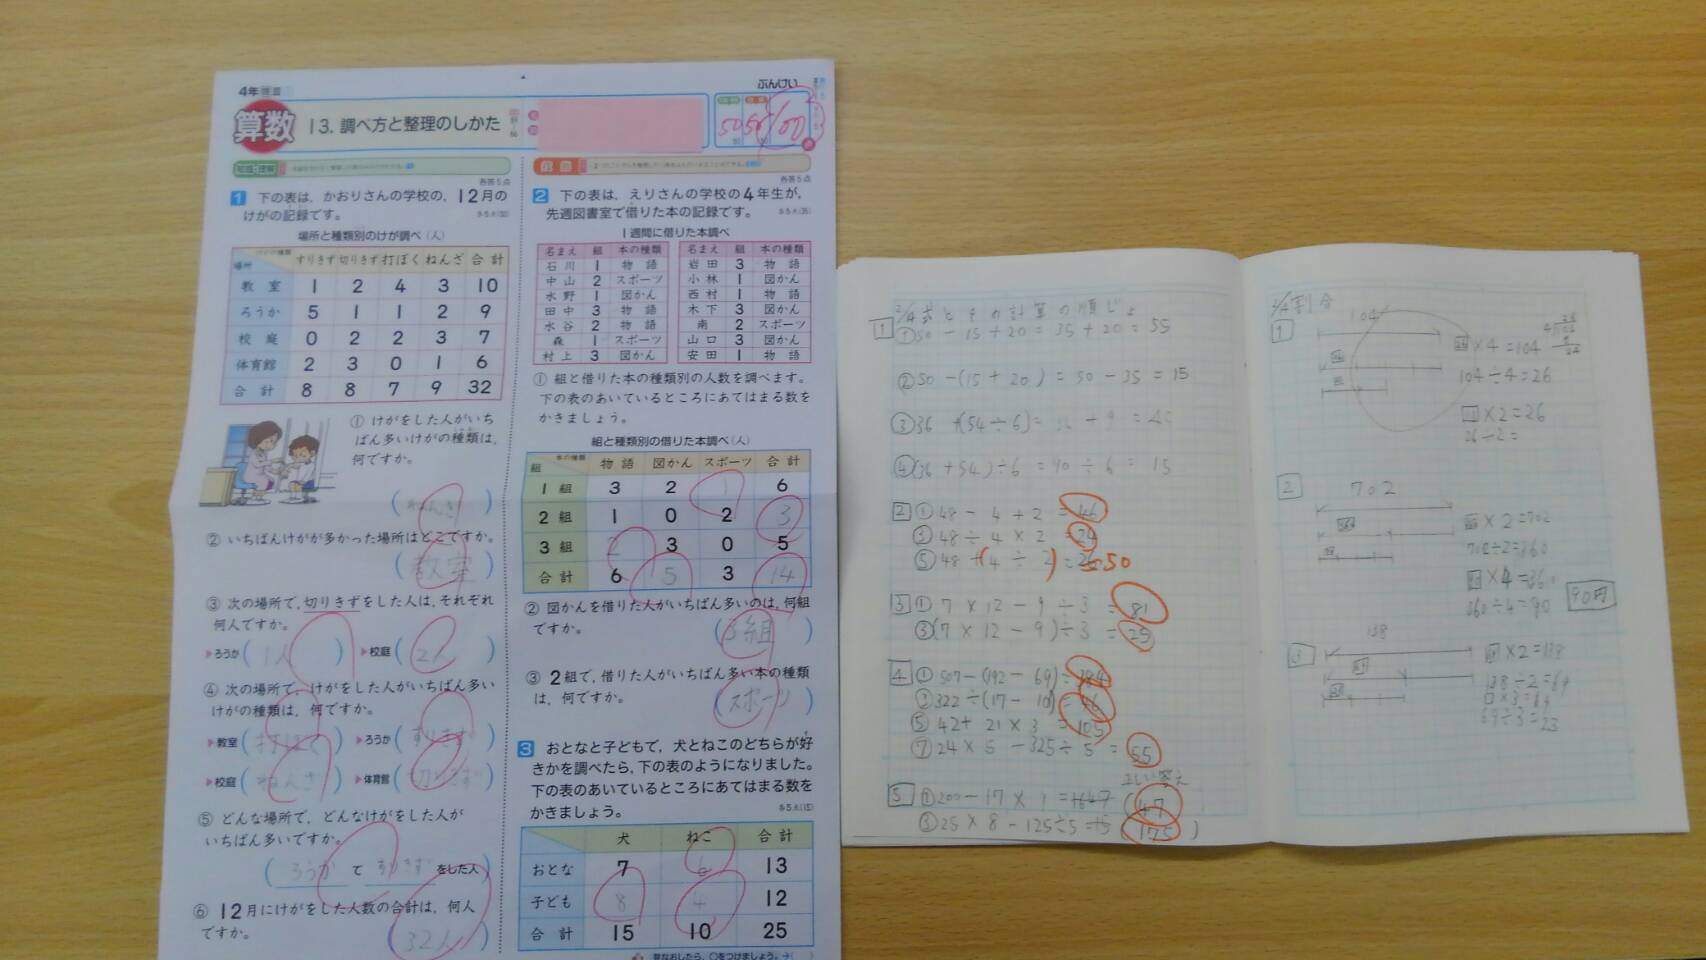 4年
ぶんけい
算数 13. 調べ方と整理のしかた
50 50 100
50 50
知識・理解
技能
各答5点
各答5点
1 下の表は、かおりさんの学校の、12月の
けがの記録です。
場所と種類別のけが調べ(人)
場所 すりきず 切りきず 打ぼく ねんざ 合計
教室 1 2 4 3 10
ろうか 5 1 1 2 9
校庭 0 2 2 3 7
体育館 2 3 0 1 6
合計 8 8 7 9 32
① けがをした人がいち
ばん多いけがの種類は、
何ですか。
(ねんざ)
② いちばんけがが多かった場所はどこですか。
(教室)
③ 次の場所で、切りきずをした人は、それぞれ
何人ですか。
▶ろうか(1人) ▶校庭(2人)
④ 次の場所で、けがをした人がいちばん多い
けがの種類は、何ですか。
▶教室(打ぼく) ▶ろうか(すりきず)
▶校庭(ねんざ) ▶体育館(切りきず)
⑤ どんな場所で、どんなけがをした人が
いちばん多いですか。
(ろうか で すりきず をした人)
⑥ 12月にけがをした人数の合計は、何人
ですか。
(32人)
2 下の表は、えりさんの学校の4年生が、
先週図書室で借りた本の記録です。
1週間に借りた本調べ
名まえ 組 本の種類 名まえ 組 本の種類
石川 1 物語 岩田 3 物語
中山 2 スポーツ 小林 1 図かん
水野 1 図かん 西村 1 物語
田中 3 物語 木下 3 図かん
水谷 2 物語 南 2 スポーツ
森 1 スポーツ 山口 3 図かん
村上 3 図かん 安田 1 物語
① 組と借りた本の種類別の人数を調べます。
下の表のあいているところにあてはまる数を
かきましょう。
組と種類別の借りた本調べ(人)
組 本の種類 物語 図かん スポーツ 合計
1組 3 2 1 6
2組 1 0 2 3
3組 2 3 0 5
合計 6 5 3 14
② 図かんを借りた人がいちばん多いのは、何組
ですか。
(3組)
③ 2組で、借りた人がいちばん多い本の種類
は、何ですか。
(スポーツ)
3 おとなと子どもで、犬とねこのどちらが好
きかを調べたら、下の表のようになりました。
下の表のあいているところにあてはまる数を
かきましょう。
犬 ねこ 合計
おとな 7 6 13
子ども 8 4 12
合計 15 10 25
2/4 式とその計算の順じょ
1 ①50 - 15 + 20 = 35 + 20 = 55
②50 - (15 + 20) = 50 - 35 = 15
③36 + (54 ÷ 6) = 36 + 9 = 45
④(36 + 54) ÷ 6 = 90 ÷ 6 = 15
2 ①48 - 4 + 2 = 46
③48 ÷ 4 × 2 = 24
⑤48 + (4 ÷ 2) = 50
3 ① 7 × 12 - 9 ÷ 3 = 81
③(7 × 12 - 9) ÷ 3 = 25
4 ① 507 - (192 - 69) = 384
③322 ÷ (17 - 10) = 46
⑤ 42 + 21 × 3 = 105
⑦ 24 × 5 - 325 ÷ 5 = 55
正しい答え
5 ①200 - 17 × 9 = 1647 (47)
③25 × 8 - 125 ÷ 5 = 15 (175)
2/4 割合
1 104
26 × 4 = 104
104 ÷ 4 = 26
□ × 2 = 26
26 ÷ 2 =
2 702
× 2 = 702
702 ÷ 2 = 360
× 4 = 360
360 ÷ 4 = 90
90円
3 138
× 2 = 138
138 ÷ 2 = 69
× 3 = 69
69 ÷ 3 = 23